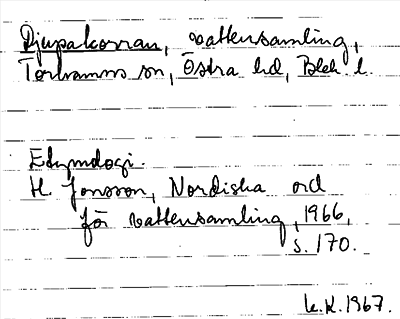 Djupakorran, vattensamling,
Torhamns sn, Östra hd, Blek. l.
Etymologi.
H. Jonsson, Nordiska ord
för vattensamling, 1966,
s. 170.
K.K. 1967.